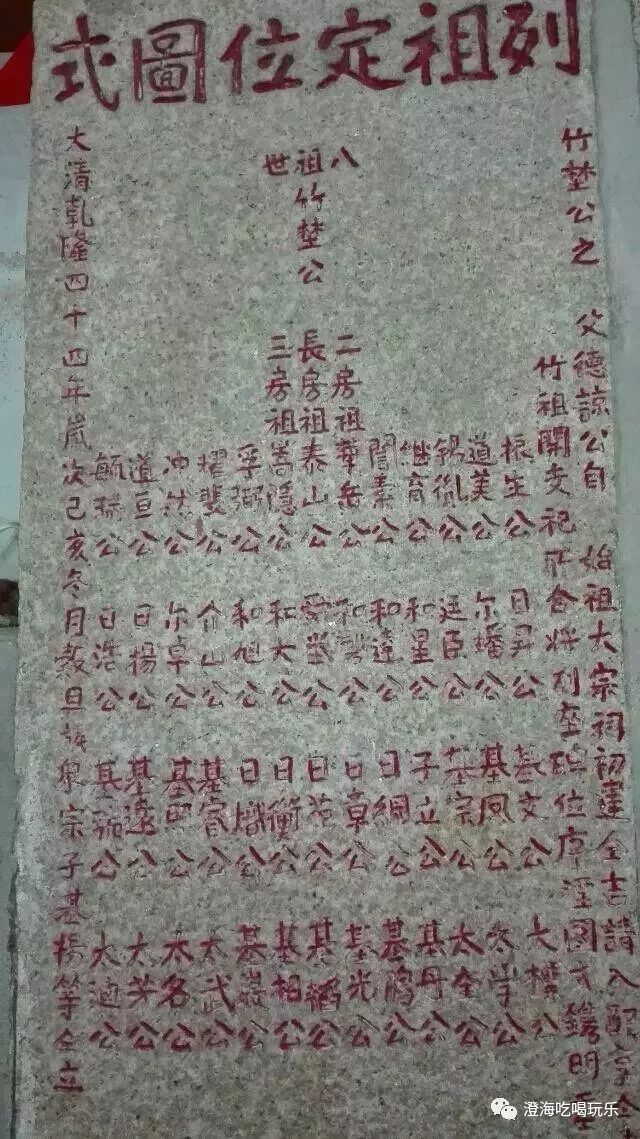 列祖定位圖式
竹埜公之父德諒公自始祖大宗祠初建全吉請入配享
竹祖開支祀所合將列座位序圖式鐫明
八世祖竹埜公
二房祖華岳公
長房祖泰山公
三房祖嵩隱公
振生公 道美公 錫胤公 継育公 誾素公 孚弼公 耀斐公 冲然公 道亘公 毓瑞公
日昇公 尔蟠公 廷臣公 和星公 和達公 和鸞公 公 和大公 和旭公 介山公 尔卓公 日揚公 日浩公
基文公 基凤公 基宗公 子立公 日綱公 日章公 日苑公 日衡公 日熾公 基睿公 基熙公 基遠公 基公
大樸公 太学公 太全公 基丹公 基鵬公 基光公 基公 基相公 基公 太武公 太名公 太芳公 太迪公
大清乾隆四十四年嵗次己亥冬月穀旦宗子基揚等仝立
澄海吃喝玩乐